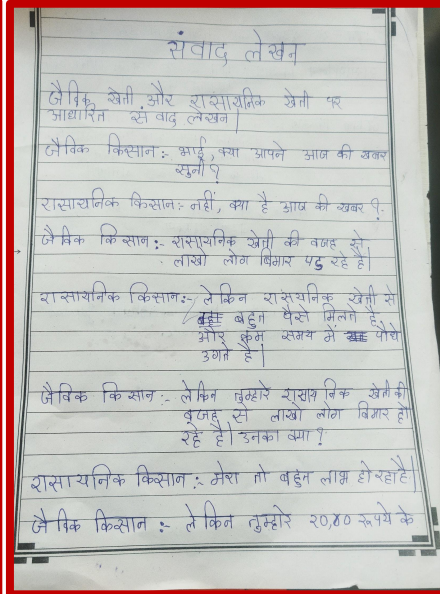 संवाद लेखन
जैविक खेती और रासायनिक खेती पर
आधारित संवाद लेखन |
जैविक किसान :- भाई, क्या आपने आज की खबर
सुनी ?
रासायनिक किसान :- नहीं, क्या है आज की खबर ?
जैविक किसान :- रासायनिक खेती की वजह से
लाखो लोग बिमार पड़ रहे है|
रासायनिक किसान :- लेकिन रासयनिक खेती से
बहुत पैसे मिलते है,
और कम समय में पौधे
उगते है |
जैविक किसान :- लेकिन तुम्हारे रासायनिक खेती की
वजह से लाखो लोग बिमार हो
रहे है| उनका क्या ?
रासायनिक किसान :- मेरा तो बहुत लाभ हो रहा है|
जैविक किसान :- लेकिन तुम्हारे २०,४० रूपये के